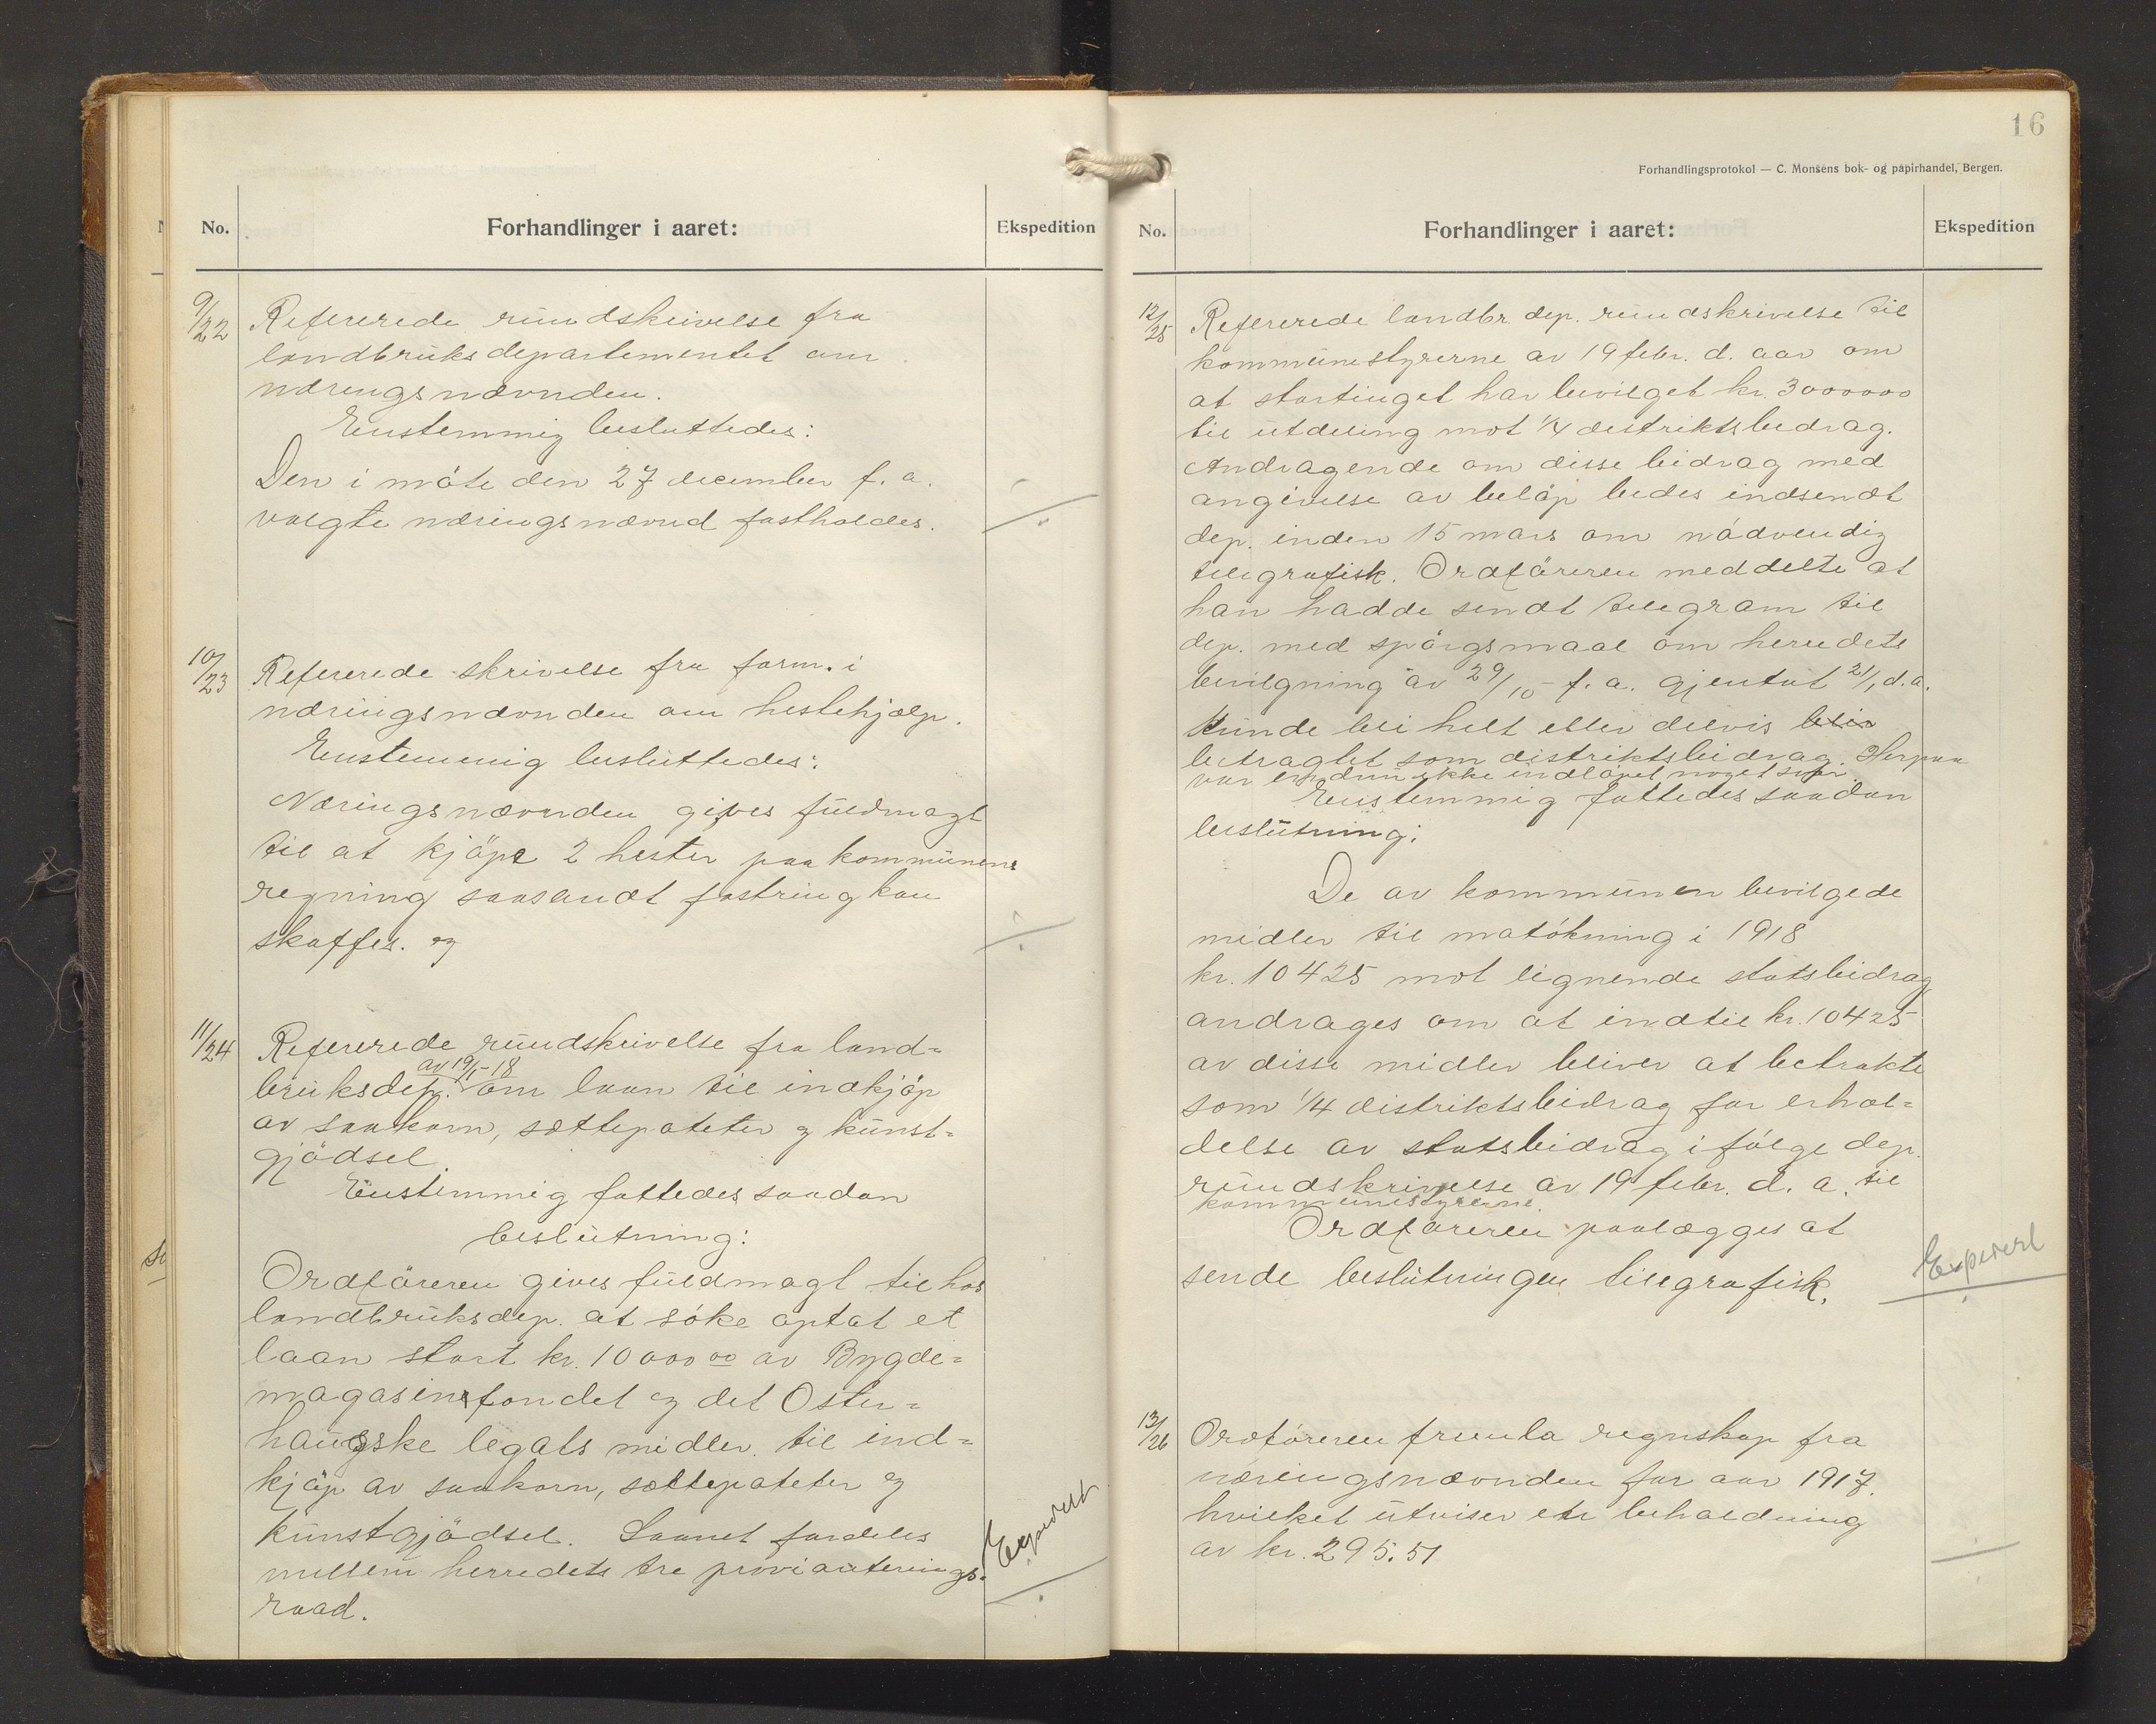 No.
Forhandlinger i aaret:
Ekspedition
9/22
Refererede rundskrivelse fra
landbruksdepartementet om
næringsnævnden.
Enstemmig besluttedes:
Den i møte den 27 december f. a.
valgte næringsnævnd fastholdes.
10/23
Refererede skrivelse fra form. i
næringsnævnden om hestehjælp.
Enstemmig besluttedes:
Næringsnævnden gives fuldmagt
til at kjøpe 2 hester paa kommunens
regning saasandt fostring kan
skaffes. og
11/24
Refererede rundskrivelse fra land=
av 19/1-18
bruksdep. om laan til indkjøp
av saakorn, sættepoteter og kunst=
gjødsel.
Enstemmig fattedes saadan
beslutning:
Ordføreren gives fuldmagt til hos
landbruksdep. at søke optat et
laan stort kr. 10 000 00 av Bygde=
magasinsfondet og det Oster=
haugske legats midler til ind=
kjøp av saakorn, sættepoteter og
kunstgjødsel. Laanet fordeles
mellem herredets tre provianterings=
raad.
Expedert
16
Forhandlingsprotokol — C. Monsens bok- og papirhandel, Bergen.
No.
Forhandlinger i aaret:
Ekspedition
12/25
Refererede landbr. dep. rundskrivelse til
kommunestyrerne av 19 febr. d. aar om
at stortinget har bevilget kr. 3000000
til utdeling mot 1/4 distriktsbidrag.
Andragende om disse bidrag med
angivelse av beløp bedes indsendt
dep. inden 15 mars om nødvendig
telegrafisk. Ordføreren meddelte at
han hadde sendt telegram til
dep. med spørgsmaal om herredets
bevilgning av 29/10 f. a. gjentat 21/1 d. a.
kunde bli helt eller delvis blir
betragtet som distriktsbidrag. Herpaa
var endnu ikke indløpet noget svar.
Enstemmig fattedes saadan
beslutning:
De av kommunen bevilgede
midler til matøkning i 1918
kr. 10425 mot lignende statsbidrag
andrages om at indtil kr. 10425
av disse midler bliver at betrakte
som 1/4 distriktsbidrag for erhol=
delse av statsbidrag ifølge dep.
rundskrivelse av 19 febr. d. a. til
kommunestyrerne.
Ordføreren paalægges at
sende beslutningen telegrafisk.
Expedert
13/26
Ordføreren fremla regnskap fra
næringsnævnden for aar 1917.
hvilket utviser en beholdning
av kr. 295.51